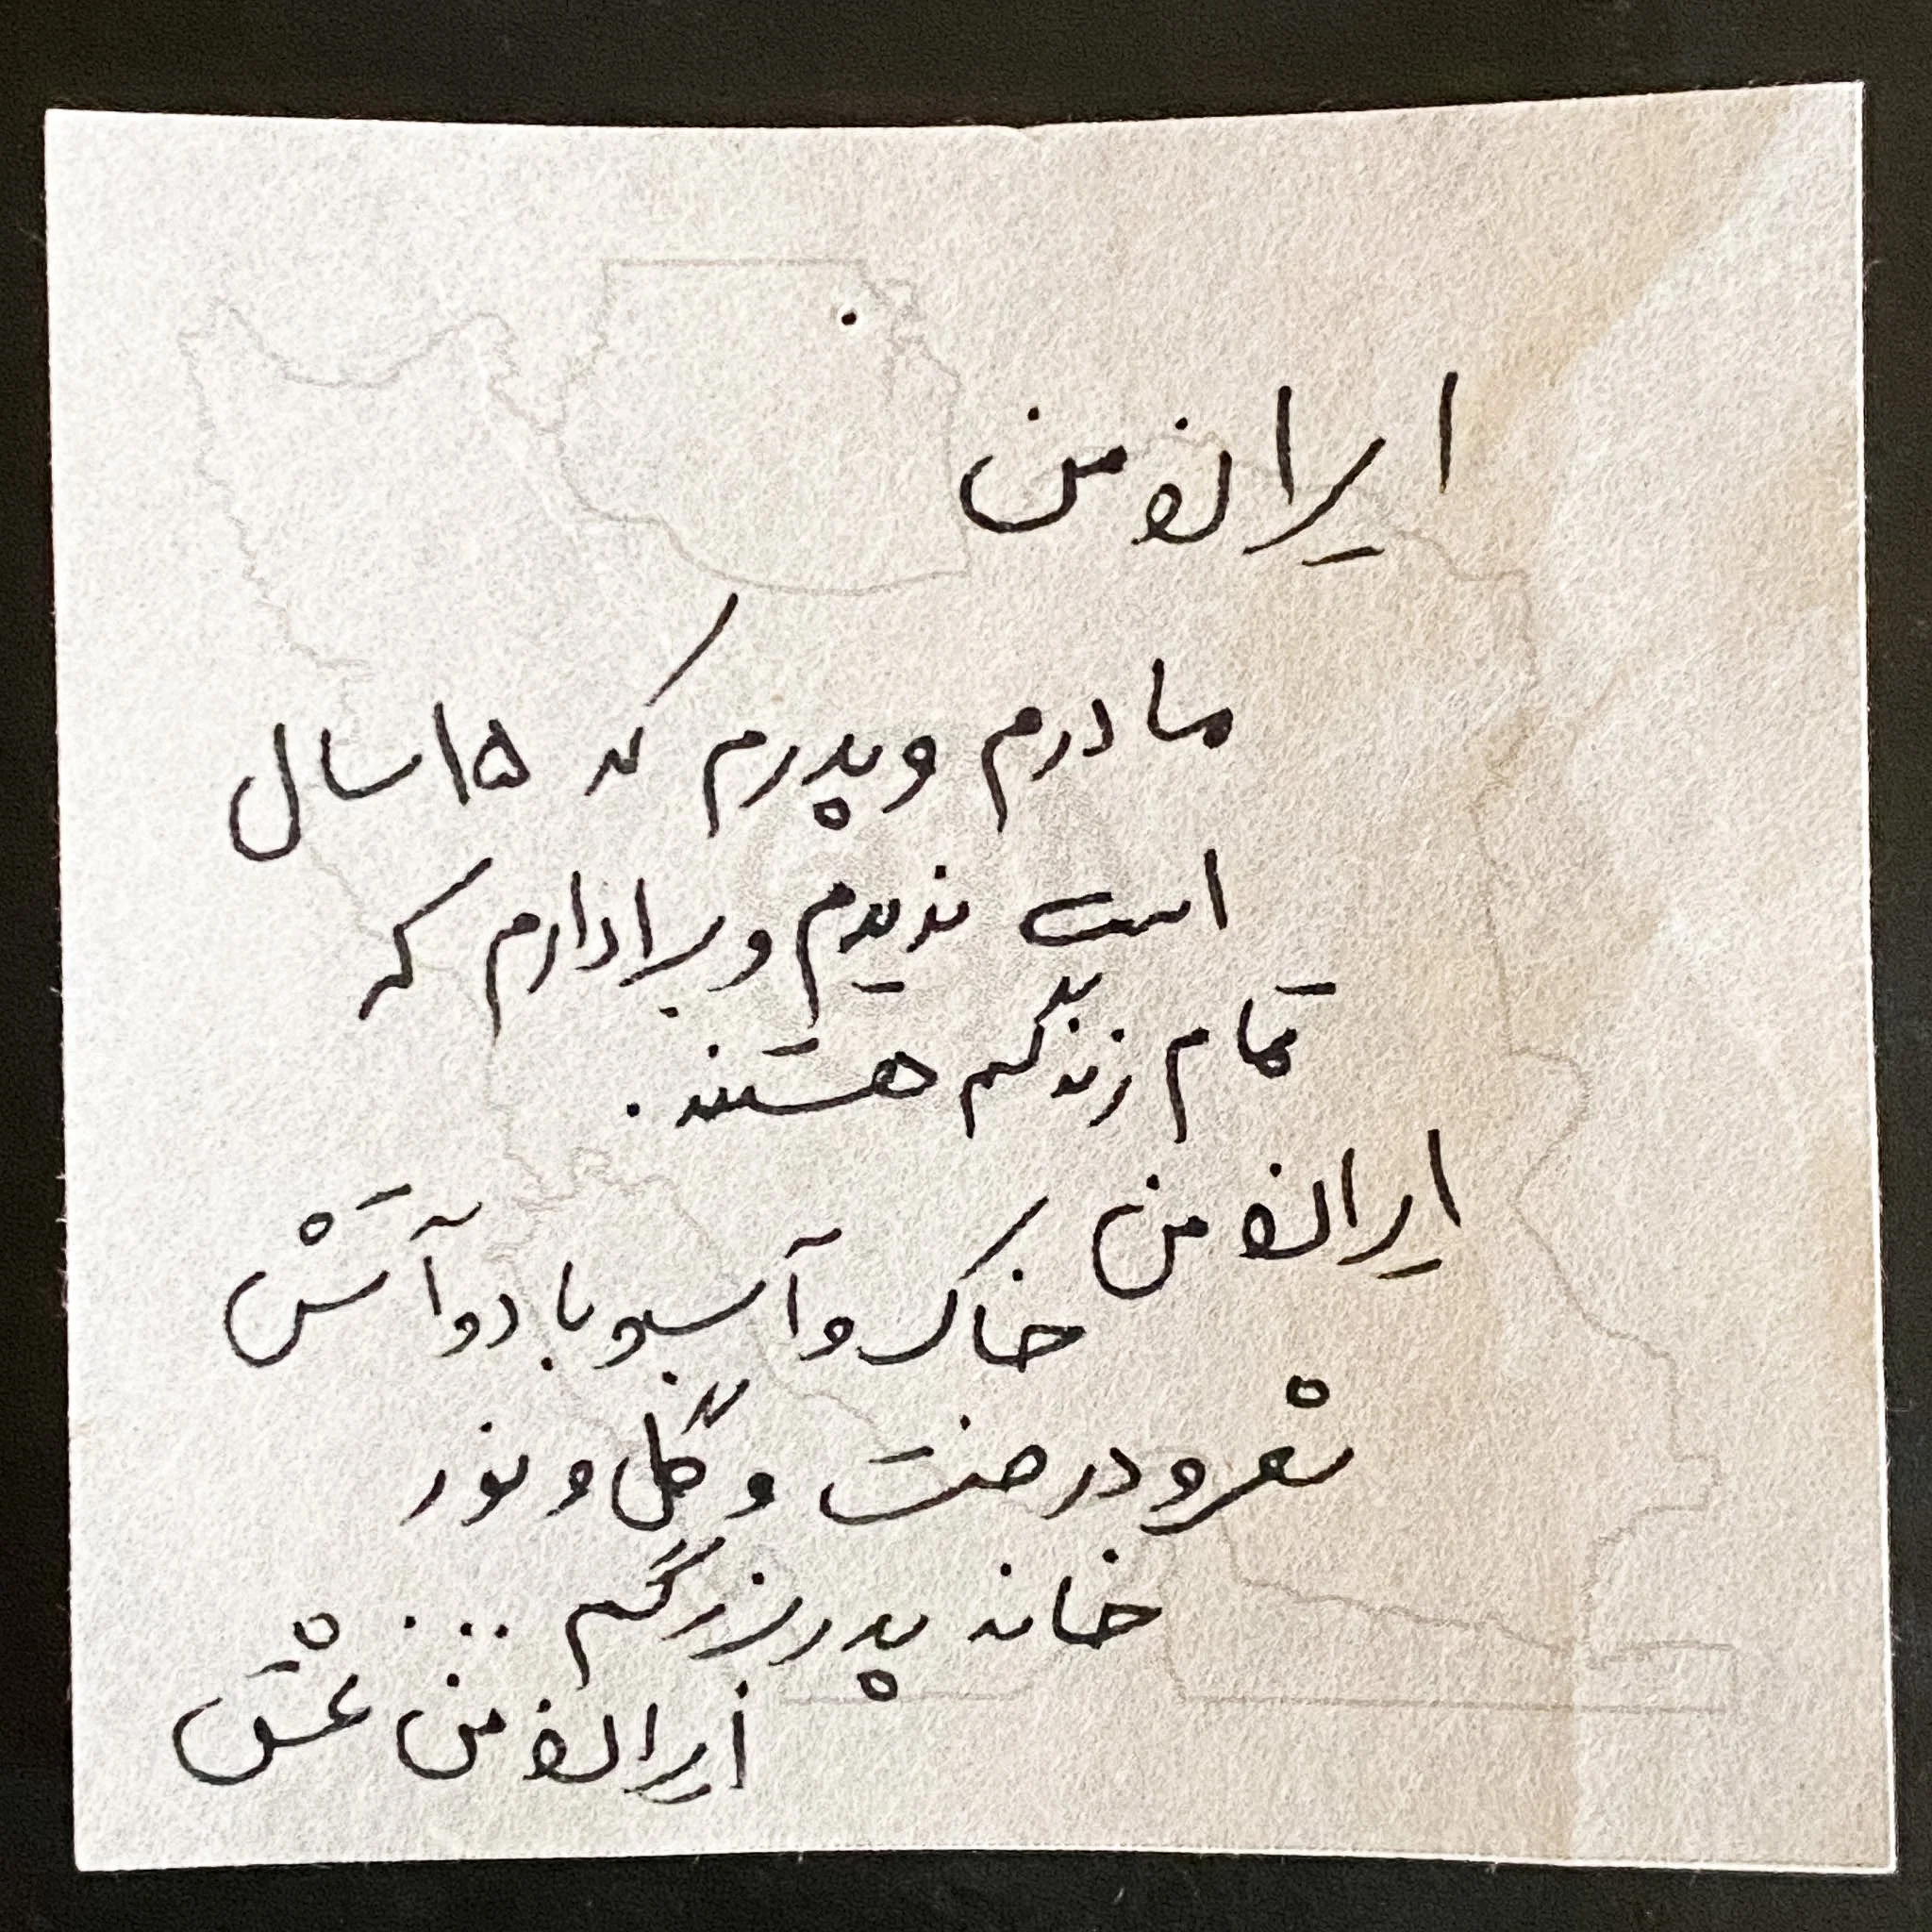 ایران من
مادرم و پدرم که ۱۵ سال
است ندیدم و برادارم که
تمام زندگیم هستند.
ایران من
خاک و آب و باد و آتش
شعر و درخت و گل و نور
خانه پدربزرگم ...
ایران من عشق